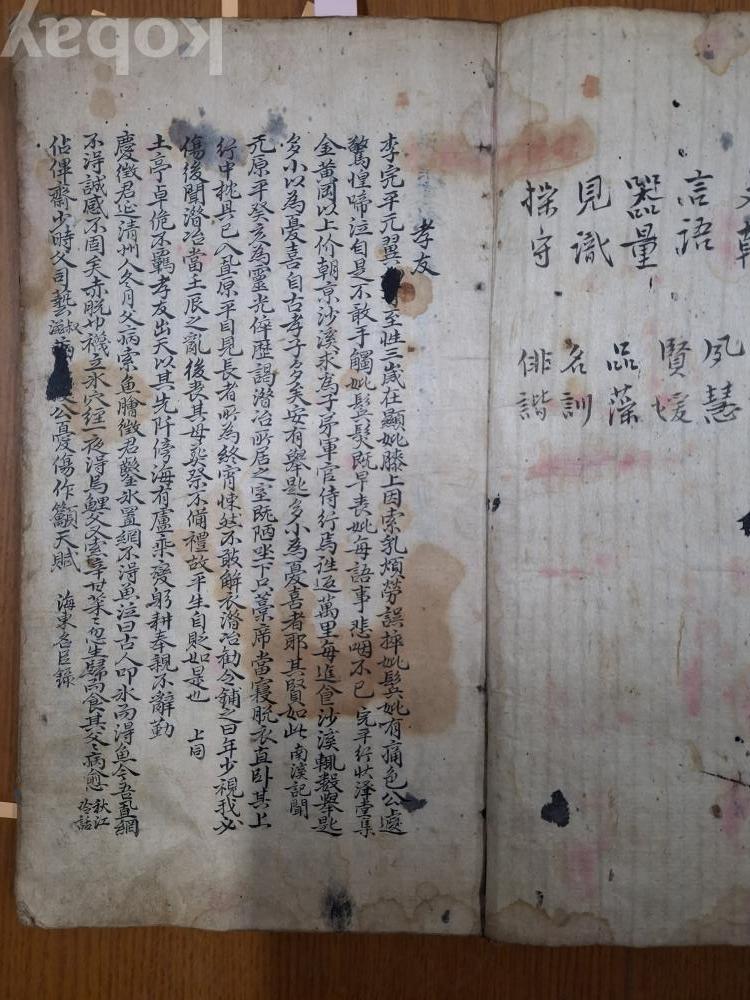 夙慧
言語 賢媛
器量 品藻
見識 名訓
操守 俳諧
孝友
李完平元翼 至性三歲在顯妣膝上因索乳煩勞誤捽妣髮妣有痛色公遽
驚惶啼泣自是不敢手觸妣鬢髮既早喪妣每語事悲咽不已 完平行狀澤堂集
金黃岡以上价朝京沙溪求為子弟軍官侍行焉往返萬里每進食沙溪輒數舉匙
多小以為憂喜自古孝子多矣安有舉匙多小為憂喜者耶其賢如此 南溪記聞
元原平癸亥為靈光倅歷謁潛冶所居之室既陋坐下只藁席當寢脫衣直臥其上
行中枕具已入置原平目見長者所為終宵悚然不敢解衣潛冶勸令鋪之曰年少視我必
傷後聞潛冶當壬辰之亂後喪其母葬祭不備禮故平生自貶如是也 上同
土亭卓佹不羈孝友出天以其先阡傍海有盧乘變躬耕奉親不辭勤
慶徵君延清州人冬月父病索魚膾徵君鑿氷置網不得魚泣曰古人叩氷而得魚今吾置網
不得誠感不固矣赤脫巾襪立氷穴經一夜得烏鯉父又 辛甘菜菜忽生歸而食其父父病愈 秋江冷話
佔俾齋少時父司藝叔滋病 公憂傷作籲天賦 海東名臣錄
kobay